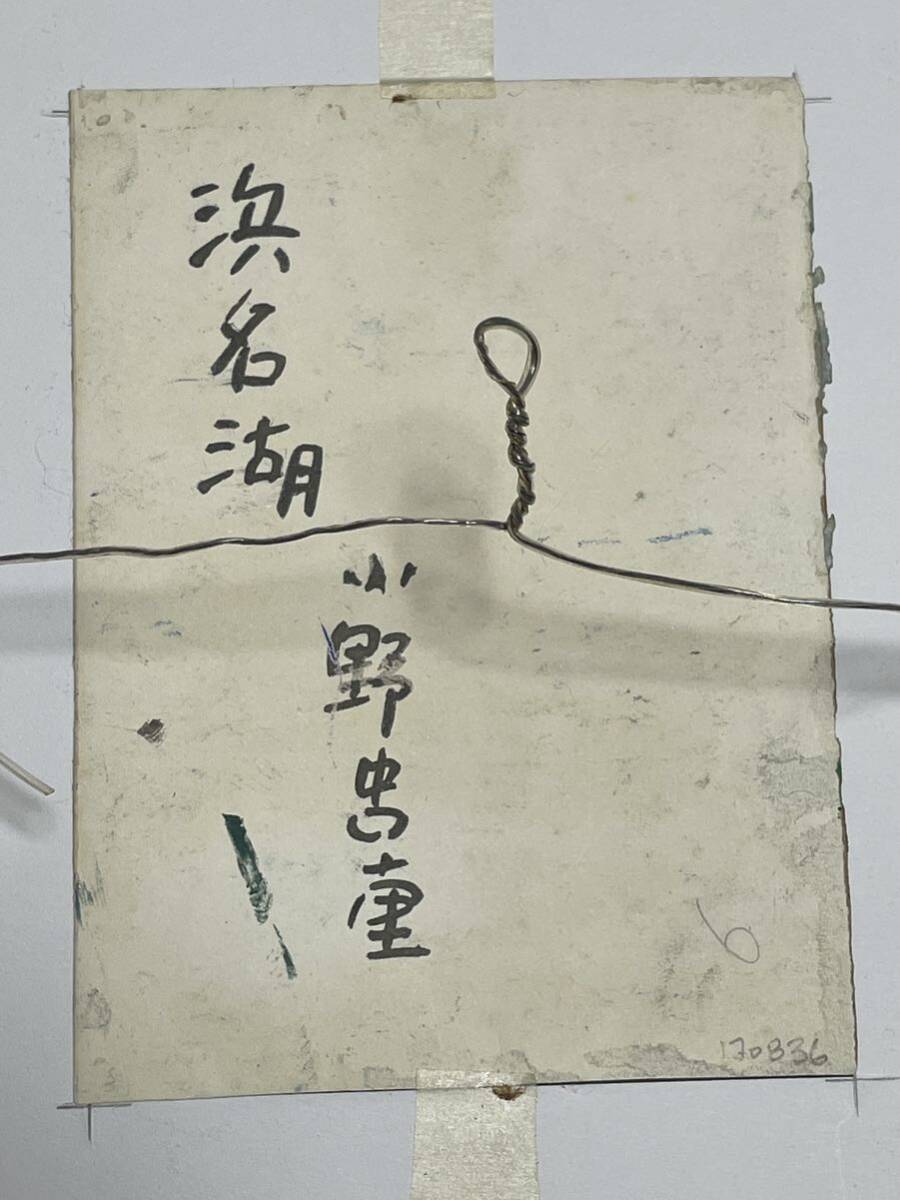 浜名湖
小野忠重
6